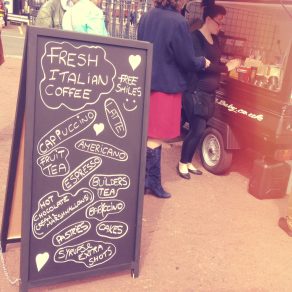 FRESH
ITALIAN
COFFEE
FREE
SMILES
CAPPUCCINO
LATTE
AMERICANO
FRUIT
TEA
ESPRESSO
BUILDERS
TEA
HOT
CHOCOLATE
CREAM &
MARSHMALLOWS
BABYCCINO
PASTRIES
CAKES
SYRUPS &
EXTRA
SHOTS